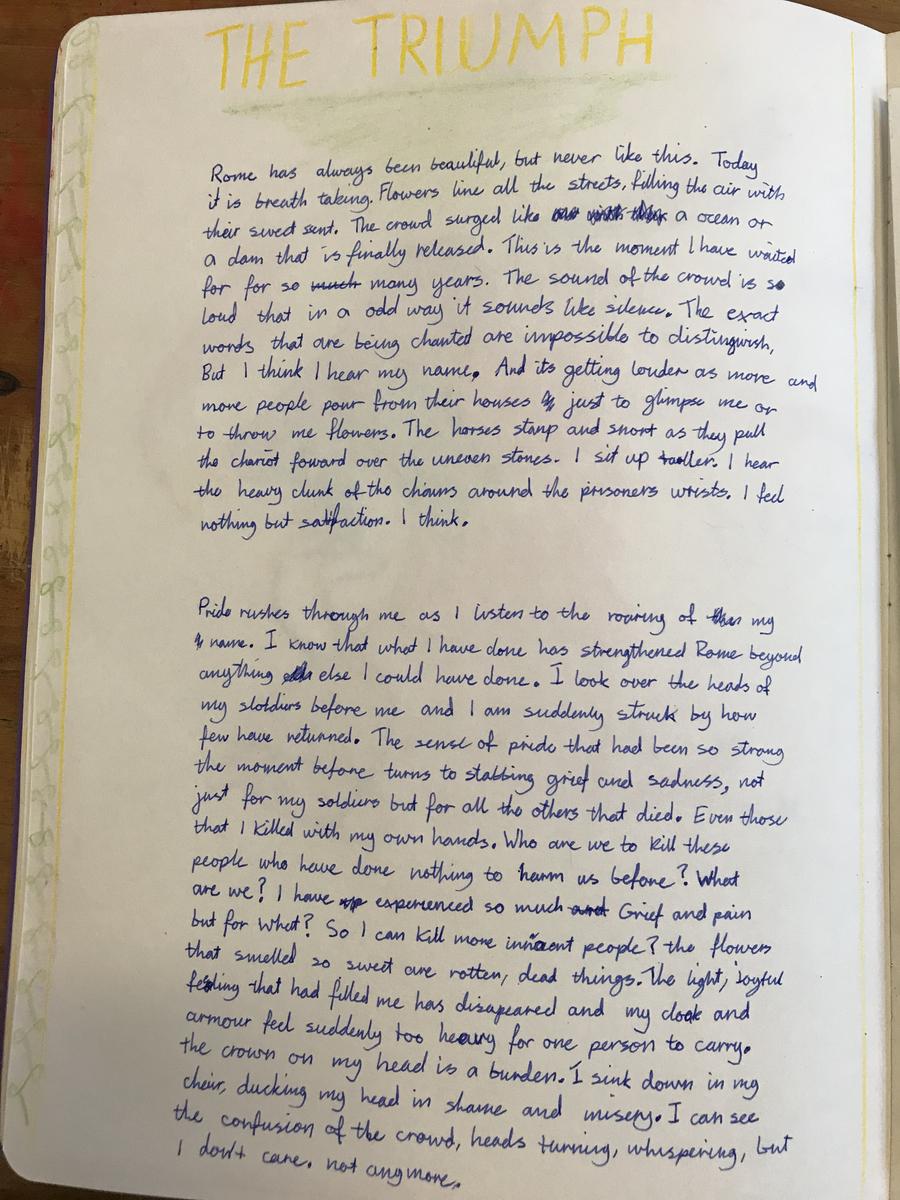 THE TRIUMPH
Rome has always been beautiful, but never like this. Today
it is breath taking. Flowers line all the streets, filling the air with
their sweet sent. The crowd surged like a ocean or
a dam that is finally released. This is the moment I have waited
for for so much many years. The sound of the crowd is so
loud that in a odd way it sounds like silence. The exact
words that are being chanted are impossible to distingwish,
But I think I hear my name. And its getting louder as more and
more people pour from their houses just to glimpse me or
to throw me flowers. The horses stanp and snort as they pull
the chariot foward over the uneven stones. I sit up taller. I hear
the heavy clunk of the chains around the prisoners wrists. I feel
nothing but satisfaction. I think.
Pride rushes through me as I listen to the roaring of my
name. I know that what I have done has strengthened Rome beyond
anything else I could have done. I look over the heads of
my sloldiers before me and I am suddenly struck by how
few have returned. The sense of pride that had been so strong
the moment before turns to stabbing grief and sadness, not
just for my soldiers but for all the others that died. Even those
that I killed with my own hands. Who are we to kill these
people who have done nothing to harm us before? What
are we? I have experienced so much and Grief and pain
but for what? So I can kill more innocent people? the flowers
that smelled so sweet are rotten, dead things. The light, joyful
feeling that had filled me has disapeared and my cloak and
armour feel suddenly too heavy for one person to carry.
the crown on my head is a burden. I sink down in my
cheir, ducking my head in shame and misery. I can see
the confusion of the crowd, heads turning, whispering, but
I don't care. not anymore.